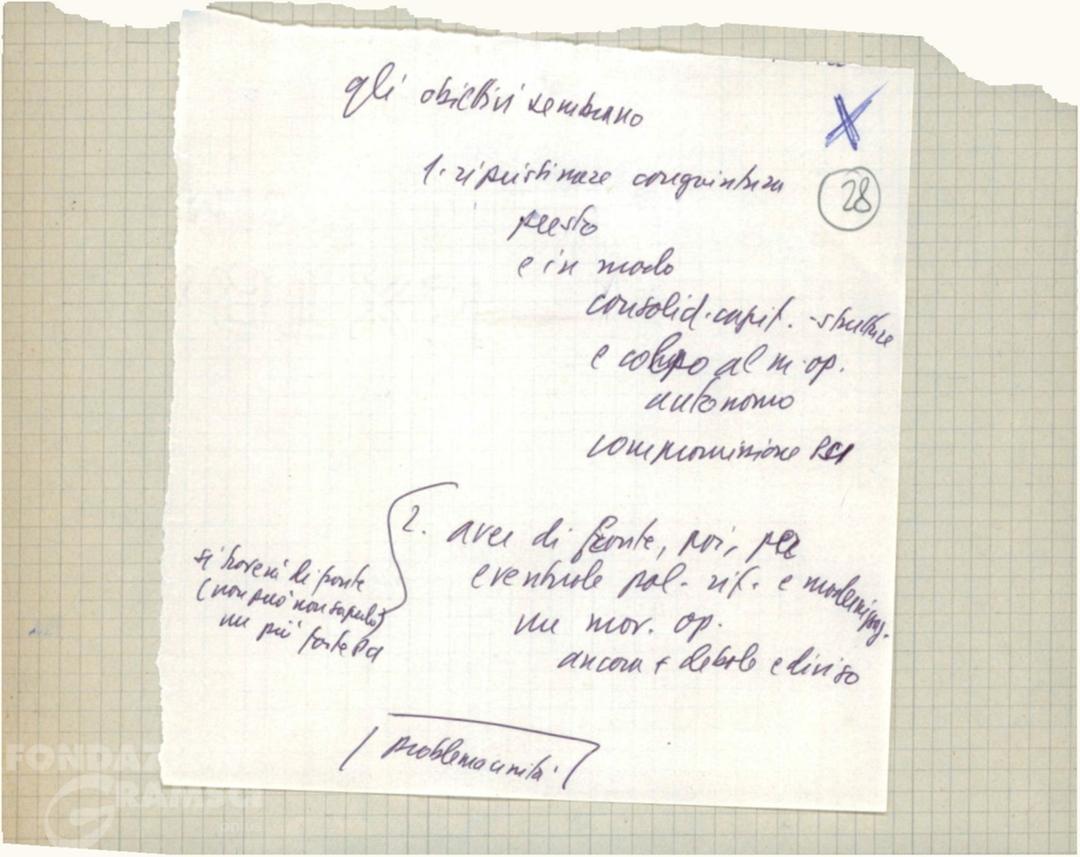 gli obiettivi sembrano
X
28
1. ripristinare congiuntura
presto
e in modo
consolid. capit. - strutture
e colpo al m. op.
autonomo
compromissione PCI
2. aver di fronte, poi, per
eventuale pol. rif. e modernizzaz.
un mov. op.
ancora + debole e diviso
si troverà di fronte
(non può non saperlo)
un più forte PCI
problema unità
FONDAZIONE
GRAMSCI
onlus